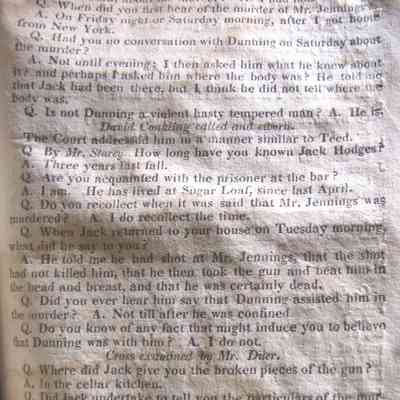 Q. When did you first hear of the murder of Mr. Jennings
A. On Friday night or Saturday morning, after I got home
from New York.
Q. Had you no conversation with Dunning on Saturday about
the murder?
A. Not until evening; I then asked him what he knew about
it? and perhaps I asked him where the body was? He told me
that Jack had been there, but I think he did not tell where the
body was.
Q. Is not Dunning a violent hasty tempered man? A. He is.
David Conkling called and sworn.
The Court addressed him in a manner similar to Teed.
Q By Mr. Storey. How long have you known Jack Hodges?
A. Three years last fall.
Q. Are you acquainted with the prisoner at the bar?
A. I am. He has lived at Sugar Loaf, since last April.
Q. Do you recollect when it was said that Mr. Jennings was
murdered? A. I do recollect the time.
Q. When Jack returned to your house on Tuesday morning,
what did he say to you?
A. He told me he had shot at Mr. Jennings, that the shot
had not killed him, that he then took the gun and beat him in
the head and breast, and that he was certainly dead.
Q. Did you ever hear him say that Dunning assisted him in
the murder? A. Not till after he was confined
Q. Do you know of any fact that might induce you to believe
that Dunning was with him? A. I do not.
Cross examined by Mr. Duer.
Q. Where did Jack give you the broken pieces of the gun?
A. In the cellar kitchen.
Q. Did Jack undertake to tell you the particulars of the mur